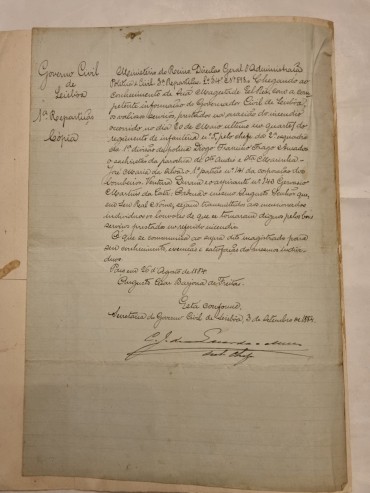 Governo Civil
de
Lisboa
1ª Repartição
Cópia
Ministerio do Reino Direcção Geral d'Administração
Politica e Civil 3ª Repartição Lº 34 nº 893. Chegando ao
conhecimento de Sua Magestade El-Rei, com a com-
petente informação do Governador Civil de Lisboa,
os valiosos serviços prestados na ocasião do incendio
occorrido no dia 20 de Março ultimo no quartel do
regimento de infanteria nº 5, pelo chefe da 2ª esquadra
da 1ª divisão de policia Diogo Francisco Thiago
o cabo
José Maria da Silva, 1º patrão nº 141 da corporação dos
bombeiros Ventura Durão e o aspirante nº 240 Germano
Martins da Costa: Determina o mesmo Augusto Senhor que,
em Seu Real Nome, sejam transmittidos aos mencionados
individuos os louvores de que se tornaram dignos pelos bons
serviços prestados no referido incendio.
O que se communica ao supra dito magistrado para
seu conhecimento, execução e satisfação dos mesmos indivi-
duos.
Paço em 20 d'Agosto de 1884.
Augusto Cesar Barjona de Freitas.
Está conforme.
Secretaria do Governo Civil de Lisboa, 3 de Setembro de 1884.